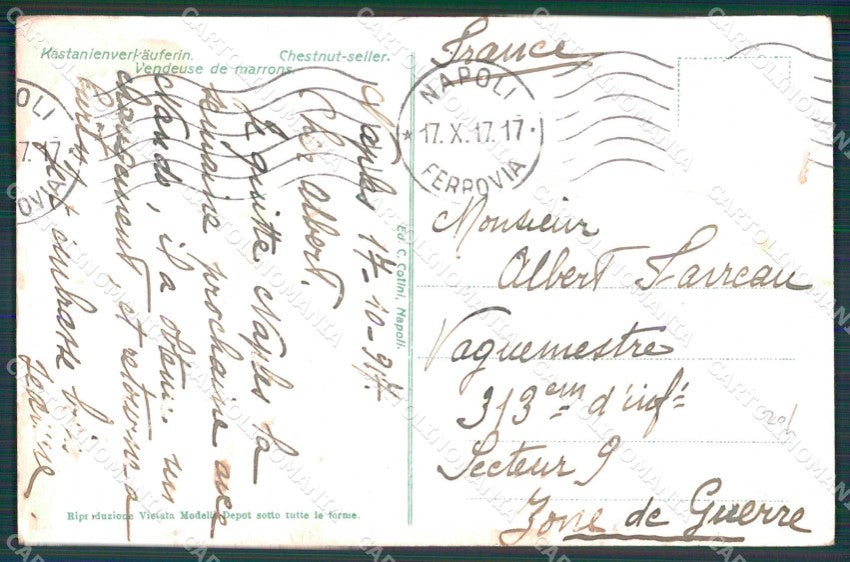 Kastanienverkäuferin. Chestnut-seller.
Vendeuse de marrons.
Naples 17-10-917.
Cher Albert,
Je quitte Naples la
semaine prochaine avec
Nando, il a obtenu un
changement et retourne a
Turin.
Je t'embrasse bien
Ed. C. Cotini, Napoli.
Riproduzione Vietata Modelli Depot sotto tutte le forme.
France
NAPOLI
17. X. 17. 17
FERROVIA
Monsieur
Albert Farreau
Vaguemestre
313em d'infie
Secteur 9
Zone de Guerre
OLI
7. 17
OVIA
CARTOLINOMANIA